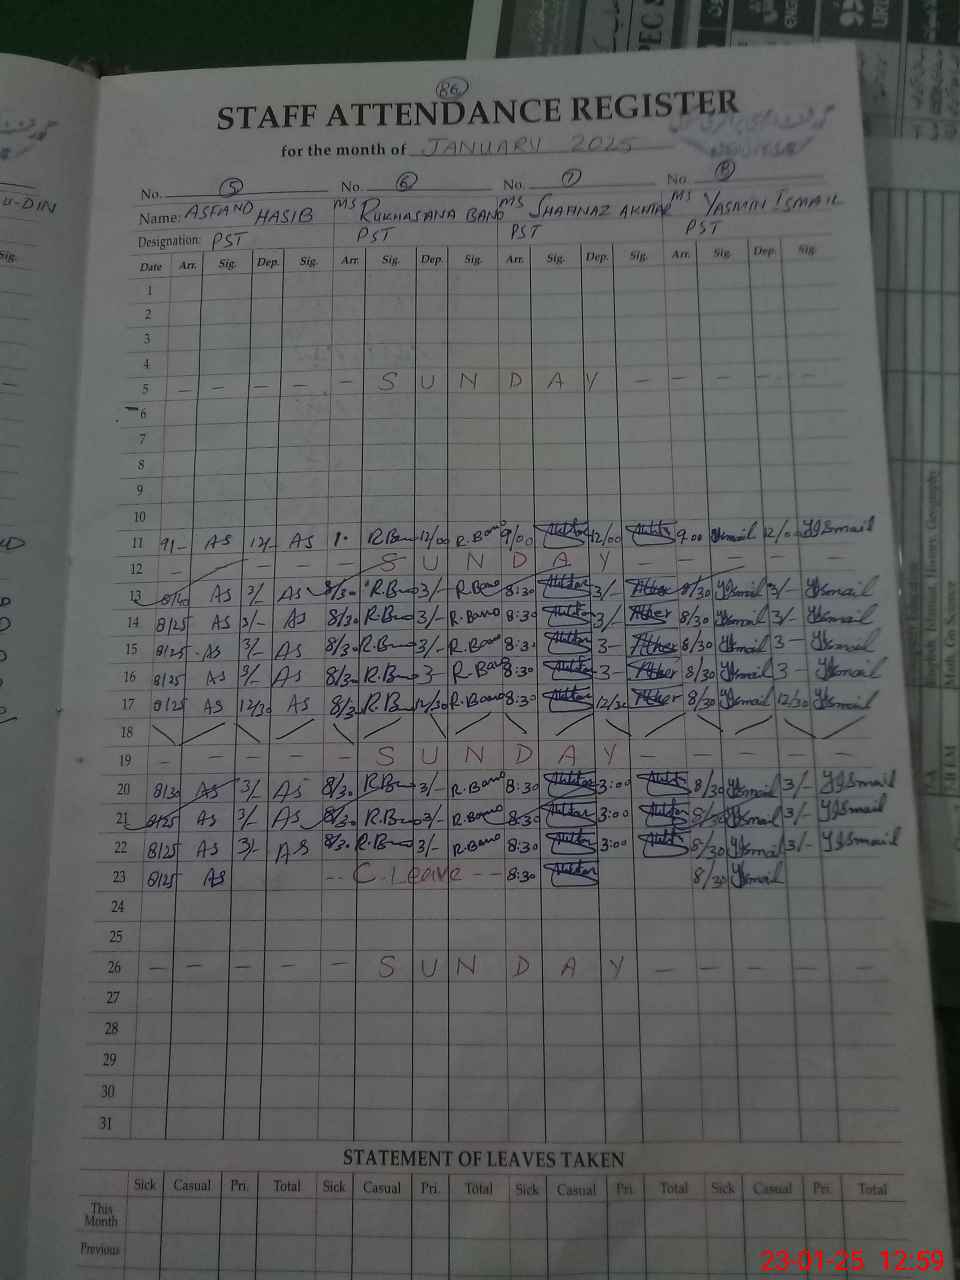 86
STAFF ATTENDANCE REGISTER
for the month of JANUARY 2025
No. 5 No. 6 No. 7 No. 8
U-DIN
Name: ASFAND HASIB MS RUKHASANA BANO MS SHAHNAZ AKHTAR MS YASMIN ISMAIL
Designation: PST PST PST PST
Date Arr. Sig. Dep. Sig. Arr. Sig. Dep. Sig. Arr. Sig. Dep. Sig. Arr. Sig. Dep. Sig.
1
2
3
4
5 — — — — — S U N D A Y — — — — —
6
7
8
9
10
11 9/- AS 12/- AS R.Bano 12/00 R.Bano 9/00 12/00 9.00 YIsmail 12/00 YIsmail
12 — — — — — S U N D A Y — — — — —
13 8/40 AS 3/- AS 8/30 R.Bano 3/- R.Bano 8:30 3/- 8/30 YIsmail 3/- YIsmail
14 8/25 AS 3/- AS 8/30 R.Bano 3/- R.Bano 8:30 3/- 8/30 YIsmail 3/- YIsmail
15 8/25 AS 3/- AS 8/30 R.Bano 3/- R.Bano 8:30 3- 8/30 YIsmail 3- YIsmail
16 8/25 AS 3/- AS 8/30 R.Bano 3- R.Bano 8:30 3- 8/30 YIsmail 3- YIsmail
17 8/25 AS 12/30 AS 8/30 R.Bano 12/30 R.Bano 8:30 12/30 8/30 YIsmail 12/30 YIsmail
18
19 — — — — — S U N D A Y — — — — —
20 8/30 AS 3/- AS 8/30 R.Bano 3/- R.Bano 8:30 3:00 8/30 YIsmail 3/- YIsmail
21 8/25 AS 3/- AS 8/30 R.Bano 3/- R.Bano 8:30 3:00 8/30 YIsmail 3/- YIsmail
22 8/25 AS 3/- AS 8/30 R.Bano 3/- R.Bano 8:30 3:00 8/30 YIsmail 3/- YIsmail
23 8/25 AS -- C. Leave -- 8:30 8/30 YIsmail
24
25
26 — — — — — S U N D A Y — — — — —
27
28
29
30
31
STATEMENT OF LEAVES TAKEN
Sick Casual Pri. Total Sick Casual Pri. Total Sick Casual Pri. Total Sick Casual Pri. Total
This Month
Previous
23-01-25 12:59